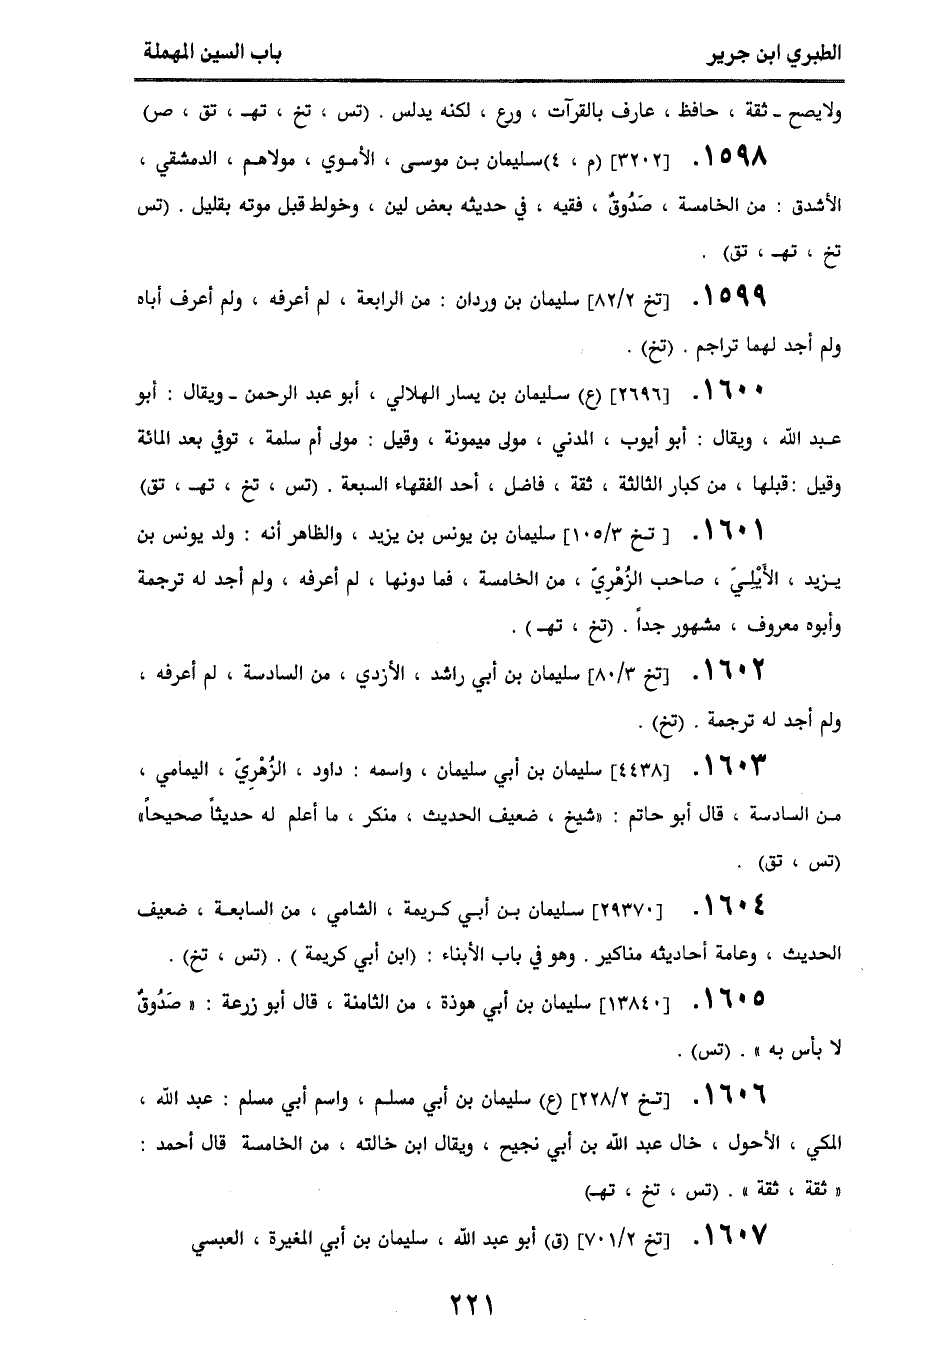 الطبري ابن جرير
باب السين المهملة
ولايصح ـ ثقة ، حافظ ، عارف بالقرآت ، ورع ، لكنه يدلس . (تس ، تخ ، تهـ ، تق ، صر)
١٥٩٨. [٣٢٠٢] (م ، ٤)سليمان بن موسى ، الأموي ، مولاهم ، الدمشقي ،
الأشدق : من الخامسة ، صَدُوقٌ ، فقيه ، في حديثه بعض لين ، وخولط قبل موته بقليل . (تس
تخ ، تهـ ، تق) .
١٥٩٩. [تخ ٨٢/٢] سليمان بن وردان : من الرابعة ، لم أعرفه ، ولم أعرف أباه
ولم أجد لهما تراجم . (تخ) .
١٦٠٠. [٢٦٩٦] (ع) سليمان بن يسار الهلالي ، أبو عبد الرحمن ـ ويقال : أبو
عبد الله ، ويقال : أبو أيوب ، المدني ، مولى ميمونة ، وقيل : مولى أم سلمة ، توفي بعد المائة
وقيل :قبلها ، من كبار الثالثة ، ثقة ، فاضل ، أحد الفقهاء السبعة . (تس ، تخ ، تهـ ، تق)
١٦٠١. [ تخ ١٠٥/٣] سليمان بن يونس بن يزيد ، والظاهر أنه : ولد يونس بن
يزيد ، الأَيْلِيّ ، صاحب الزُهْرِيّ ، من الخامسة ، فما دونها ، لم أعرفه ، ولم أجد له ترجمة
وأبوه معروف ، مشهور جداً . (تخ ، تهـ ) .
١٦٠٢. [تخ ٨٠/٣] سليمان بن أبي راشد ، الأزدي ، من السادسة ، لم أعرفه ،
ولم أجد له ترجمة . (تخ) .
١٦٠٣. [٤٤٣٨] سليمان بن أبي سليمان ، واسمه : داود ، الزُهْرِيّ ، اليمامي ،
من السادسة ، قال أبو حاتم : «شيخ ، ضعيف الحديث ، منكر ، ما أعلم له حديثاً صحيحاً»
(تس ، تق) .
١٦٠٤. [٢٩٣٧٠] سليمان بن أبي كريمة ، الشامي ، من السابعة ، ضعيف
الحديث ، وعامة أحاديثه مناكير . وهو في باب الأبناء : (ابن أبي كريمة ) . (تس ، تخ) .
١٦٠٥. [١٣٨٤٠] سليمان بن أبي هوذة ، من الثامنة ، قال أبو زرعة : « صَدُوقٌ
لا بأس به » . (تس) .
١٦٠٦. [تخ ٢٢٨/٢] (ع) سليمان بن أبي مسلم ، واسم أبي مسلم : عبد الله ،
المكي ، الأحول ، خال عبد الله بن أبي نجيح ، ويقال ابن خالته ، من الخامسة قال أحمد :
« ثقة ، ثقة » . (تس ، تخ ، تهـ)
١٦٠٧. [تخ ٧٠١/٢] (ق) أبو عبد الله ، سليمان بن أبي المغيرة ، العبسي
٢٢١